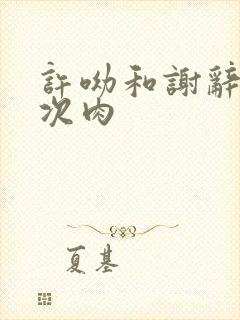 許呦和謝辭
次肉
夏基